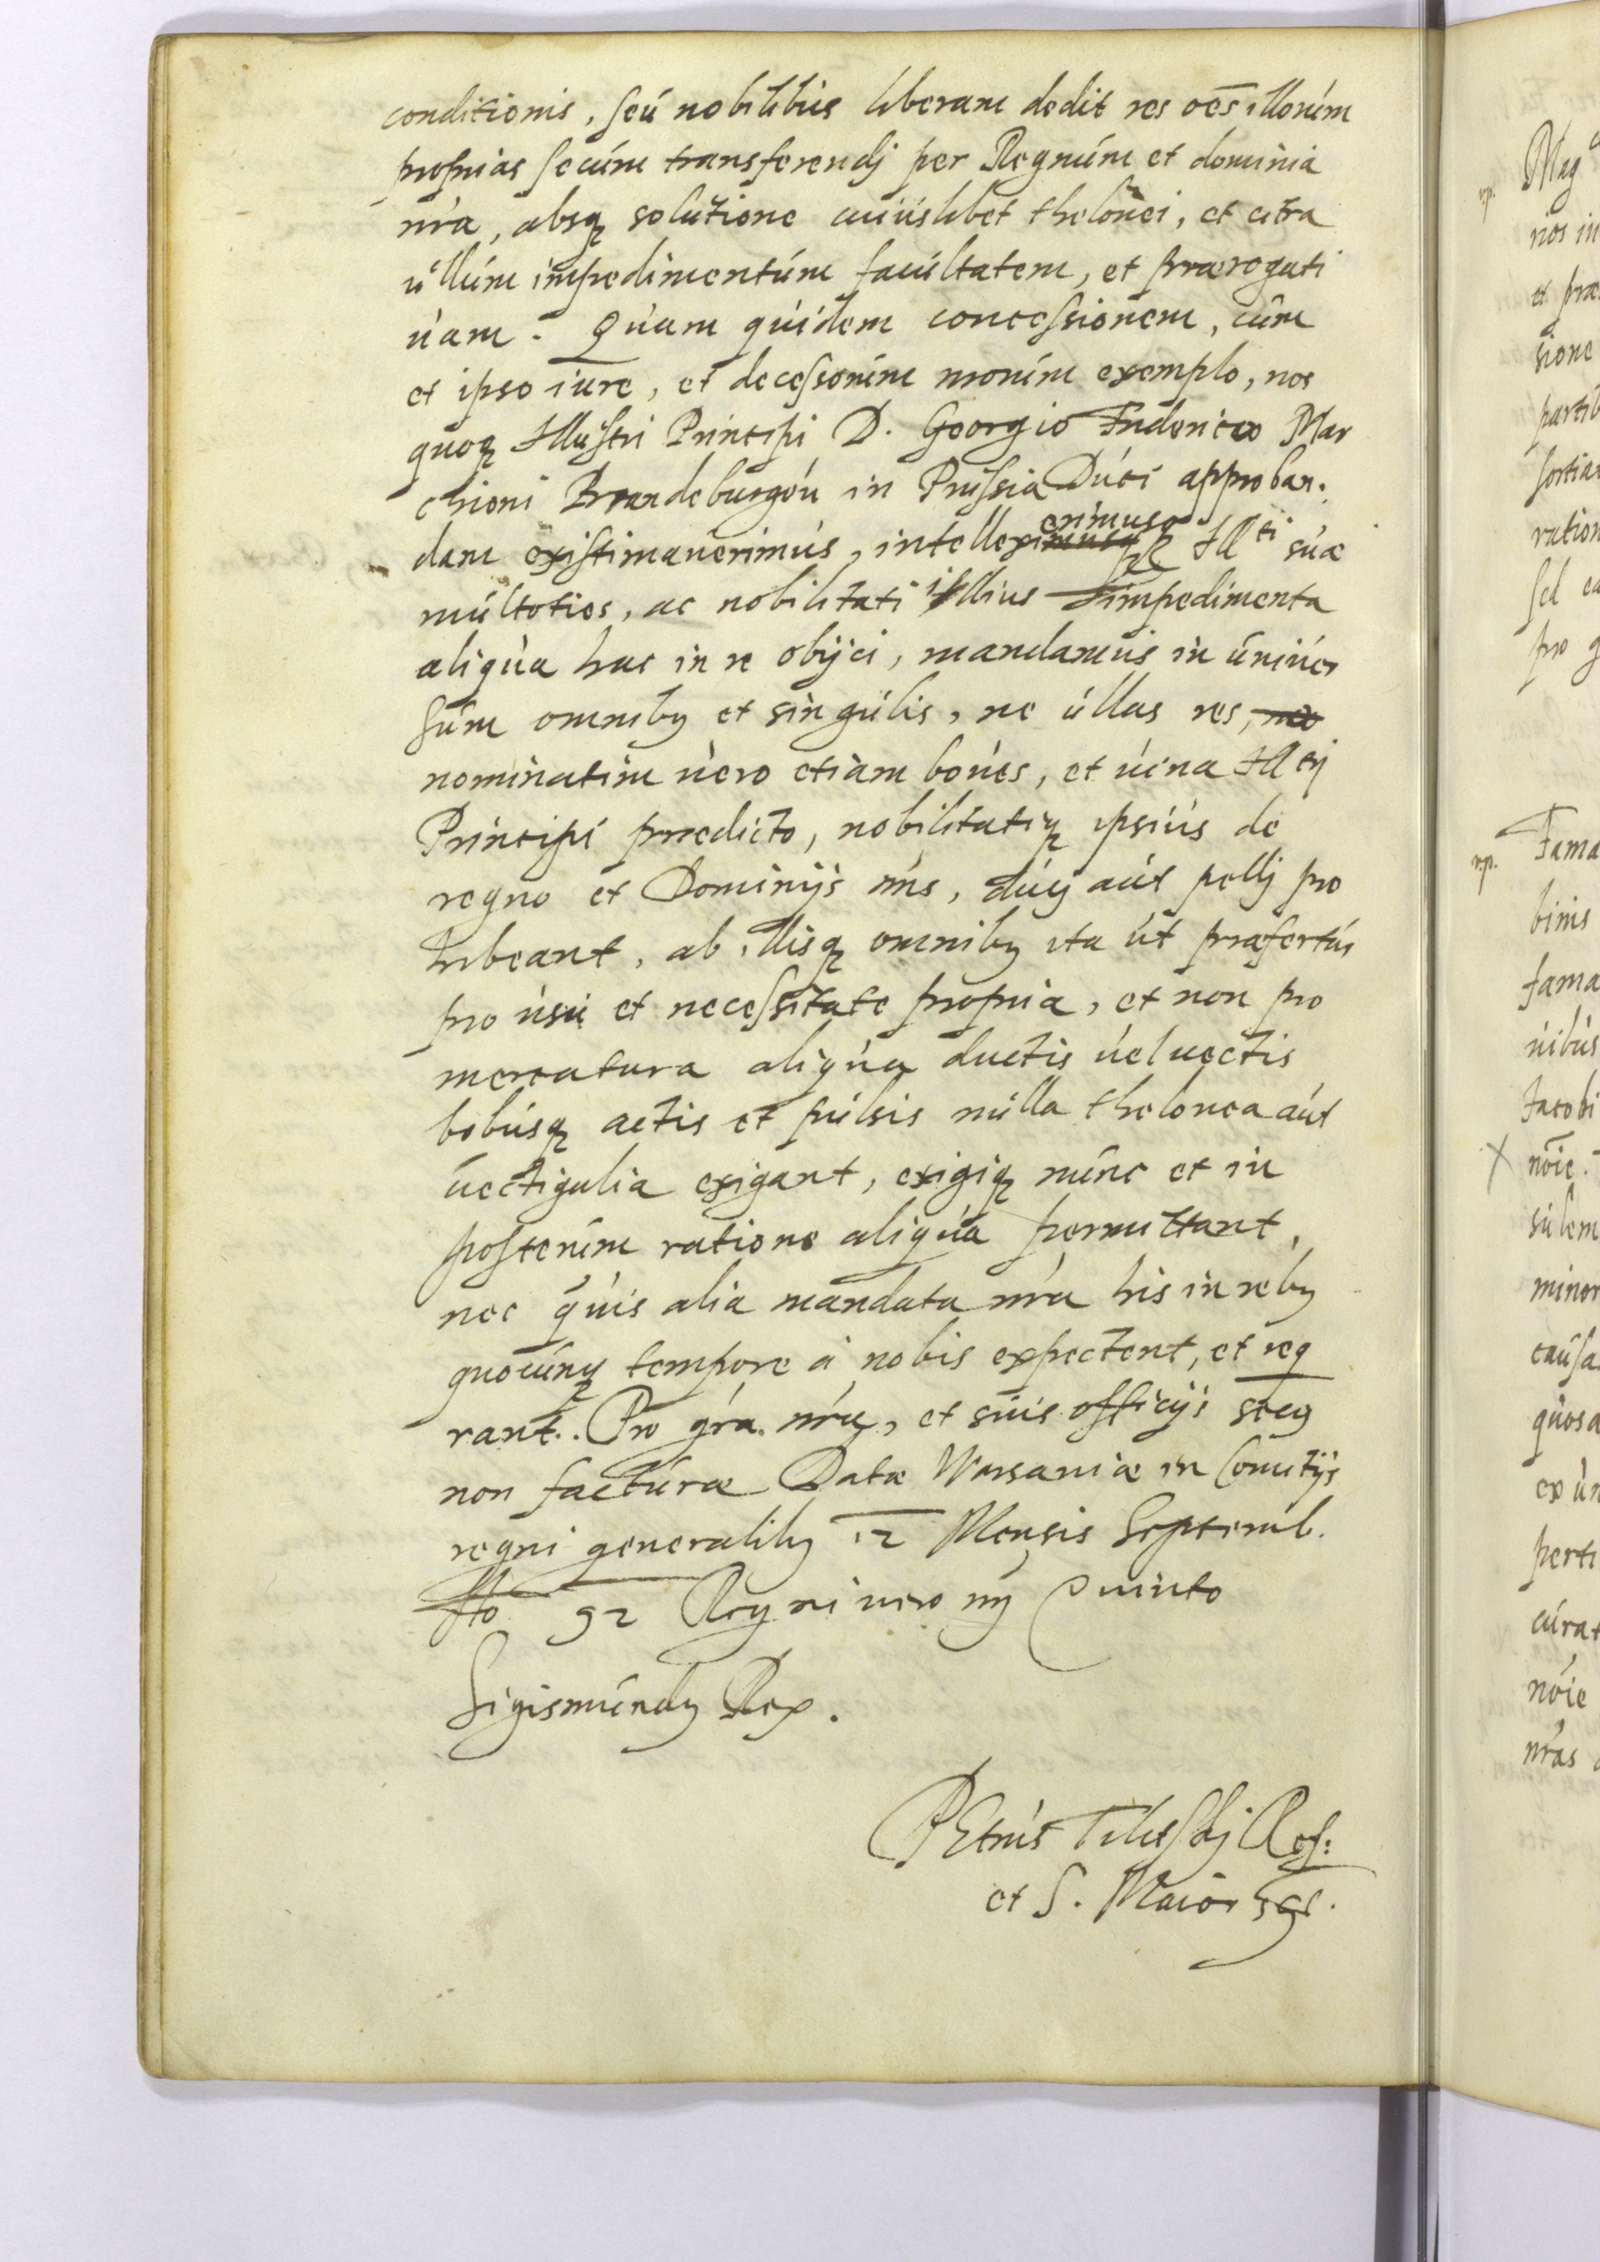 conditionis, seú nobilibús liberam dedit res oēs illorúm
proprias secúm transferendj per Regnúm et dominia
nr̃a, absq solutione cuiúslibet thelonei, et citra
úllúm impedimentúm facúltatem, et prærogati
úam. Quam quidem concessionem, cúm
et ipso iure, et decessorúm nrorúm exemplo, nos
quoq Illustri Principi D. Georgio Friderico Mar
chioni Brandeburgen in Prussia Dúci approban.
dam existimauerimús, intellexerimusq Illti súæ
múltoties, ac nobilitati illius impedimenta
aliqúa hac in re obijci, mandamús in úniúer
súm omniby et singúlis, ne úllas res,
nominatim úero etiam boúes, et úina Illri
Principi prædicto, nobilitatiq ipsiús de
regno et Dominijs nr̃is, dúcj aút pellj pro
hibeant, ab illisq omniby ita út præfertúr
pro úsú et necessitate propria, et non pro
mercatura aliqúa ductis úel uectis
bobúsq actis et púlsis núlla thelonea aút
úectigalia exigant, exigiq núnc et in
posterúm ratione aliqúa permittant,
nec qúis alia mandata nr̃a his in reby
quocúnq tempore à nobis expectent, et req
rant. Pro gr̃a nr̃a, et súis officijs secq
non factúræ Datæ Warsaniæ in Comitijs
regni generaliby 12 Mensis Septemb.
Ao 92 Regni uero nri Quinto
Sigismúndy Rex.
PEtrús Tiliczkj Ref:
et S. Maior Scr.
Mag
np.
nos in
et præ
sione
partib
sortiar
ration
sel ea
pro g
np.
Fama
binis
fama
nibús
Jacobi
X nōie.
súlem
minor
caúsa
qúosa
ex ún
perti
cúrat
nōie
nr̃as